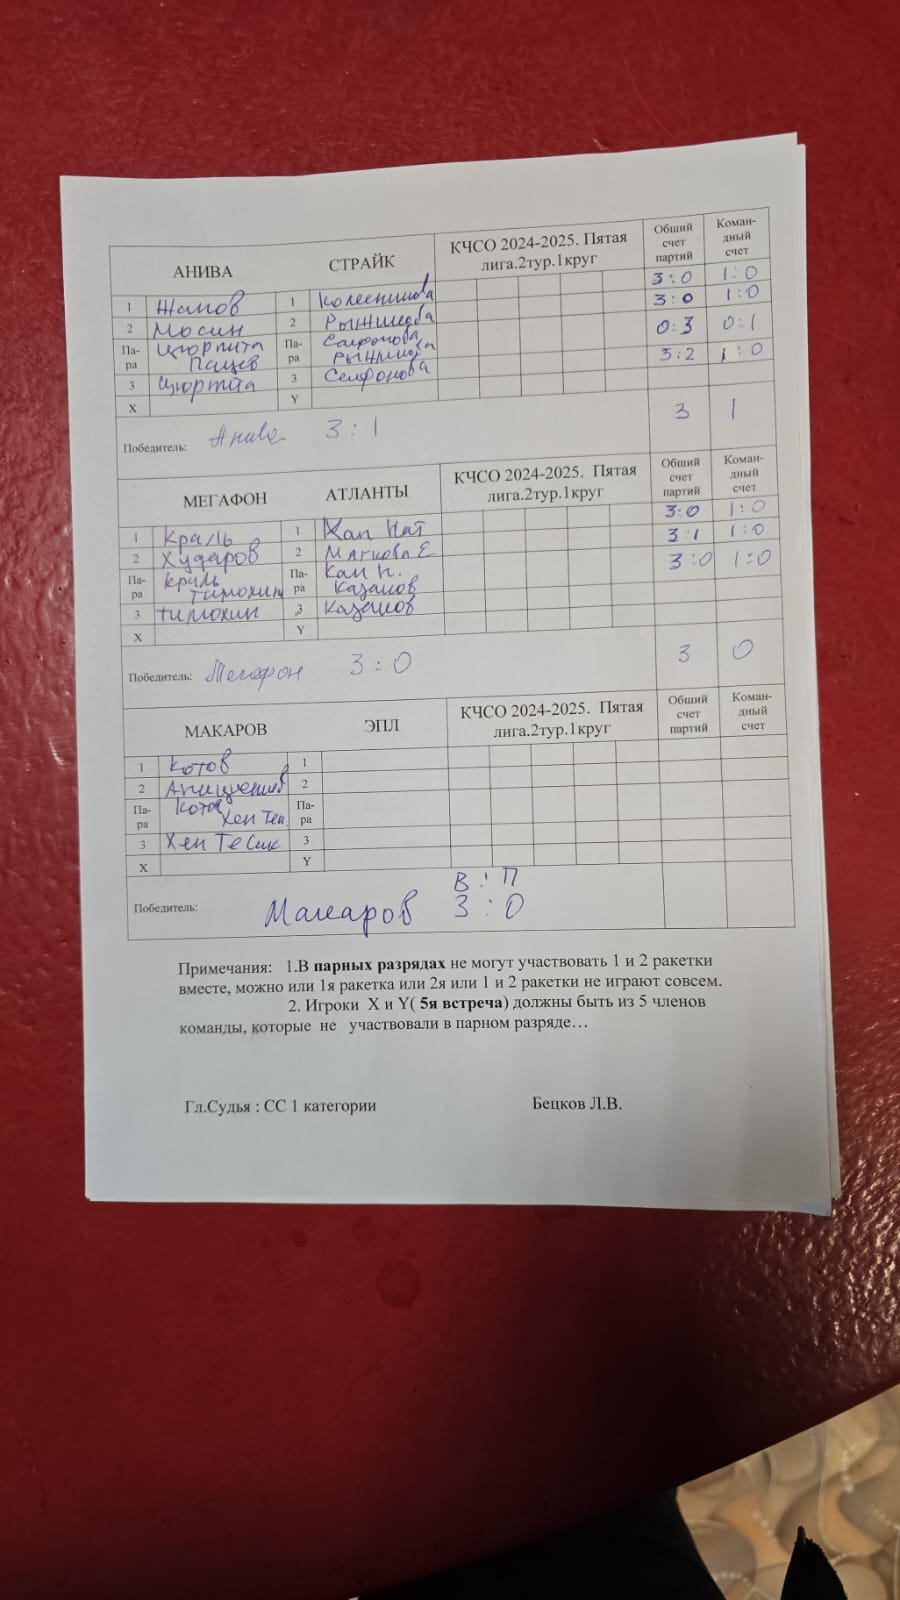 АНИВА СТРАЙК КЧСО 2024-2025. Пятая лига.2тур.1круг Обший счет партий Коман-дный счет
3:0 1:0
1 Жамов 1 3:0 1:0
2 Мосин 2 0:3 0:1
Па-ра Па-ра 3:2 1:0
3 3
X Y
Победитель: Анива 3:1 3 1
МЕГАФОН АТЛАНТЫ КЧСО 2024-2025. Пятая лига.2тур.1круг Обший счет партий Коман-дный счет
3:0 1:0
1 Краль 1 3:1 1:0
2 Хударов 2 Мягкова Е 3:0 1:0
Па-ра Краль Тимохин Па-ра Кан Н. Казаков
3 Тимохин 3 Казаков
X Y
Победитель: Мегафон 3:0 3 0
МАКАРОВ ЭПЛ КЧСО 2024-2025. Пятая лига.2тур.1круг Обший счет партий Коман-дный счет
1 Котов 1
2 2
Па-ра Котов Хен Тен Па-ра
3 Хен Те Сик 3
X Y
В:П
Победитель: Макаров 3:0
Примечания: 1.В парных разрядах не могут участвовать 1 и 2 ракетки
вместе, можно или 1я ракетка или 2я или 1 и 2 ракетки не играют совсем.
2. Игроки X и Y( 5я встреча) должны быть из 5 членов
команды, которые не участвовали в парном разряде…
Гл.Судья : СС 1 категории Бецков Л.В.